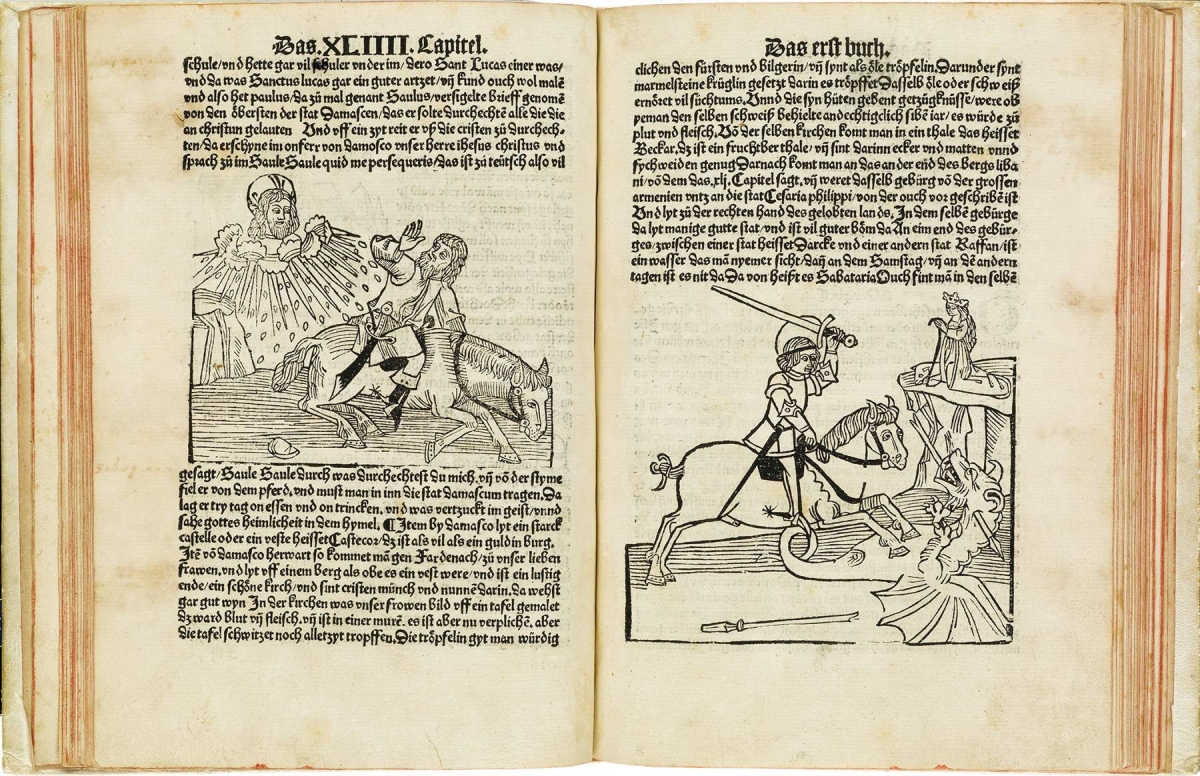 Das.XLIIII.Capitel.
schule/vnd hette gar vil schuler vnder im/dero Sant Lucas einer was/
vnd da was Sanctus lucas gar ein guter artzet/vñ kund ouch wol malē
vnd also het paulus/da zů mal genant Saulus/versigelte brieff genomē
von den öbersten der stat Damascen/das er solte durchechtē alle die die
an christun gelauten Vnd vff ein zyt reit er vß die cristen zů durchech-
ten/da erschyne im onferr von damosco vnser herre ihesus christus vnd
sprach zů im Saule Saule quid me persequeris/das ist zů teütsch also vil
gesagt/Saule Saule durch was durchechtest du mich.vñ vō der styme
fiel er von dem pferd.vnd must man in inn die stat damascum tragen.Da
lag er try tag on essen vnd on trincken.vnd was vertzuckt im geist/vnnd
sahe gottes heimlicheit in dem hymel. ¶Item by damasco lyt ein starck
castelle oder ein veste heisset Castecor/dz ist als vil als ein guldin burg.
Itē vō damasco herwart so kommet mā gen Fardenach/zů vnser lieben
frawen.vnd lyt vff einem berg als obe es ein vest were/vnd ist ein lustig
ende/ein schöne kirch/vnd sint cristen münch vnd nunnē darin.da wehst
gar gut wyn In der kirchen was vnser frowen bild vff ein tafel gemalet
dz ward blut vñ fleisch.vñ ist in einer murē.es ist aber nu verplichē.aber
die tafel schwitzet noch alletzyt tropffen.Die tröpfelin gyt man würdig
Das erst buch.
clichen den fürsten vnd bilgerin/vñ synt als öle tröpfelin.Darunder synt
marmelsteine krüglin gesetzt darin es tröpffet Dasselb öle oder schweiß
ernöret vil süchtums.Vnnd die syn hüten gebent getzügknüsse/were ob
yeman den selben schweiß behielte andechtiglich sibē iar/es würde zů
plut vnd fleisch.Vō der selben kirchen komt man in ein thale das heisset
Beckar.dz ist ein fruchtber thale/vñ sint darinn ecker vnd matten vnnd
sychweiden genug Darnach komt man an das ander end des bergs liba
ni/vō dem das.xlj.Capitel sagt.vñ weret dasselb gebürg vō der grossen
armenien vntz an die stat Cesaria philippi/von der ouch vor geschribē ist
Vnd lyt zů der rechten hand des gelobten lands.In dem selbē gebürge
da lyt manige gutte stat/vnd ist vil guter böm da An eim end des gebür-
ges/zwischen einer stat heisset Darcke vnd einer andern stat Raffan/ist
ein wasser das mā nyemer sicht/dañ an dem Samstag/vñ an dē andern
tagen ist es nit da Da von heißt es Sabataria Ouch fint mā in den selbē